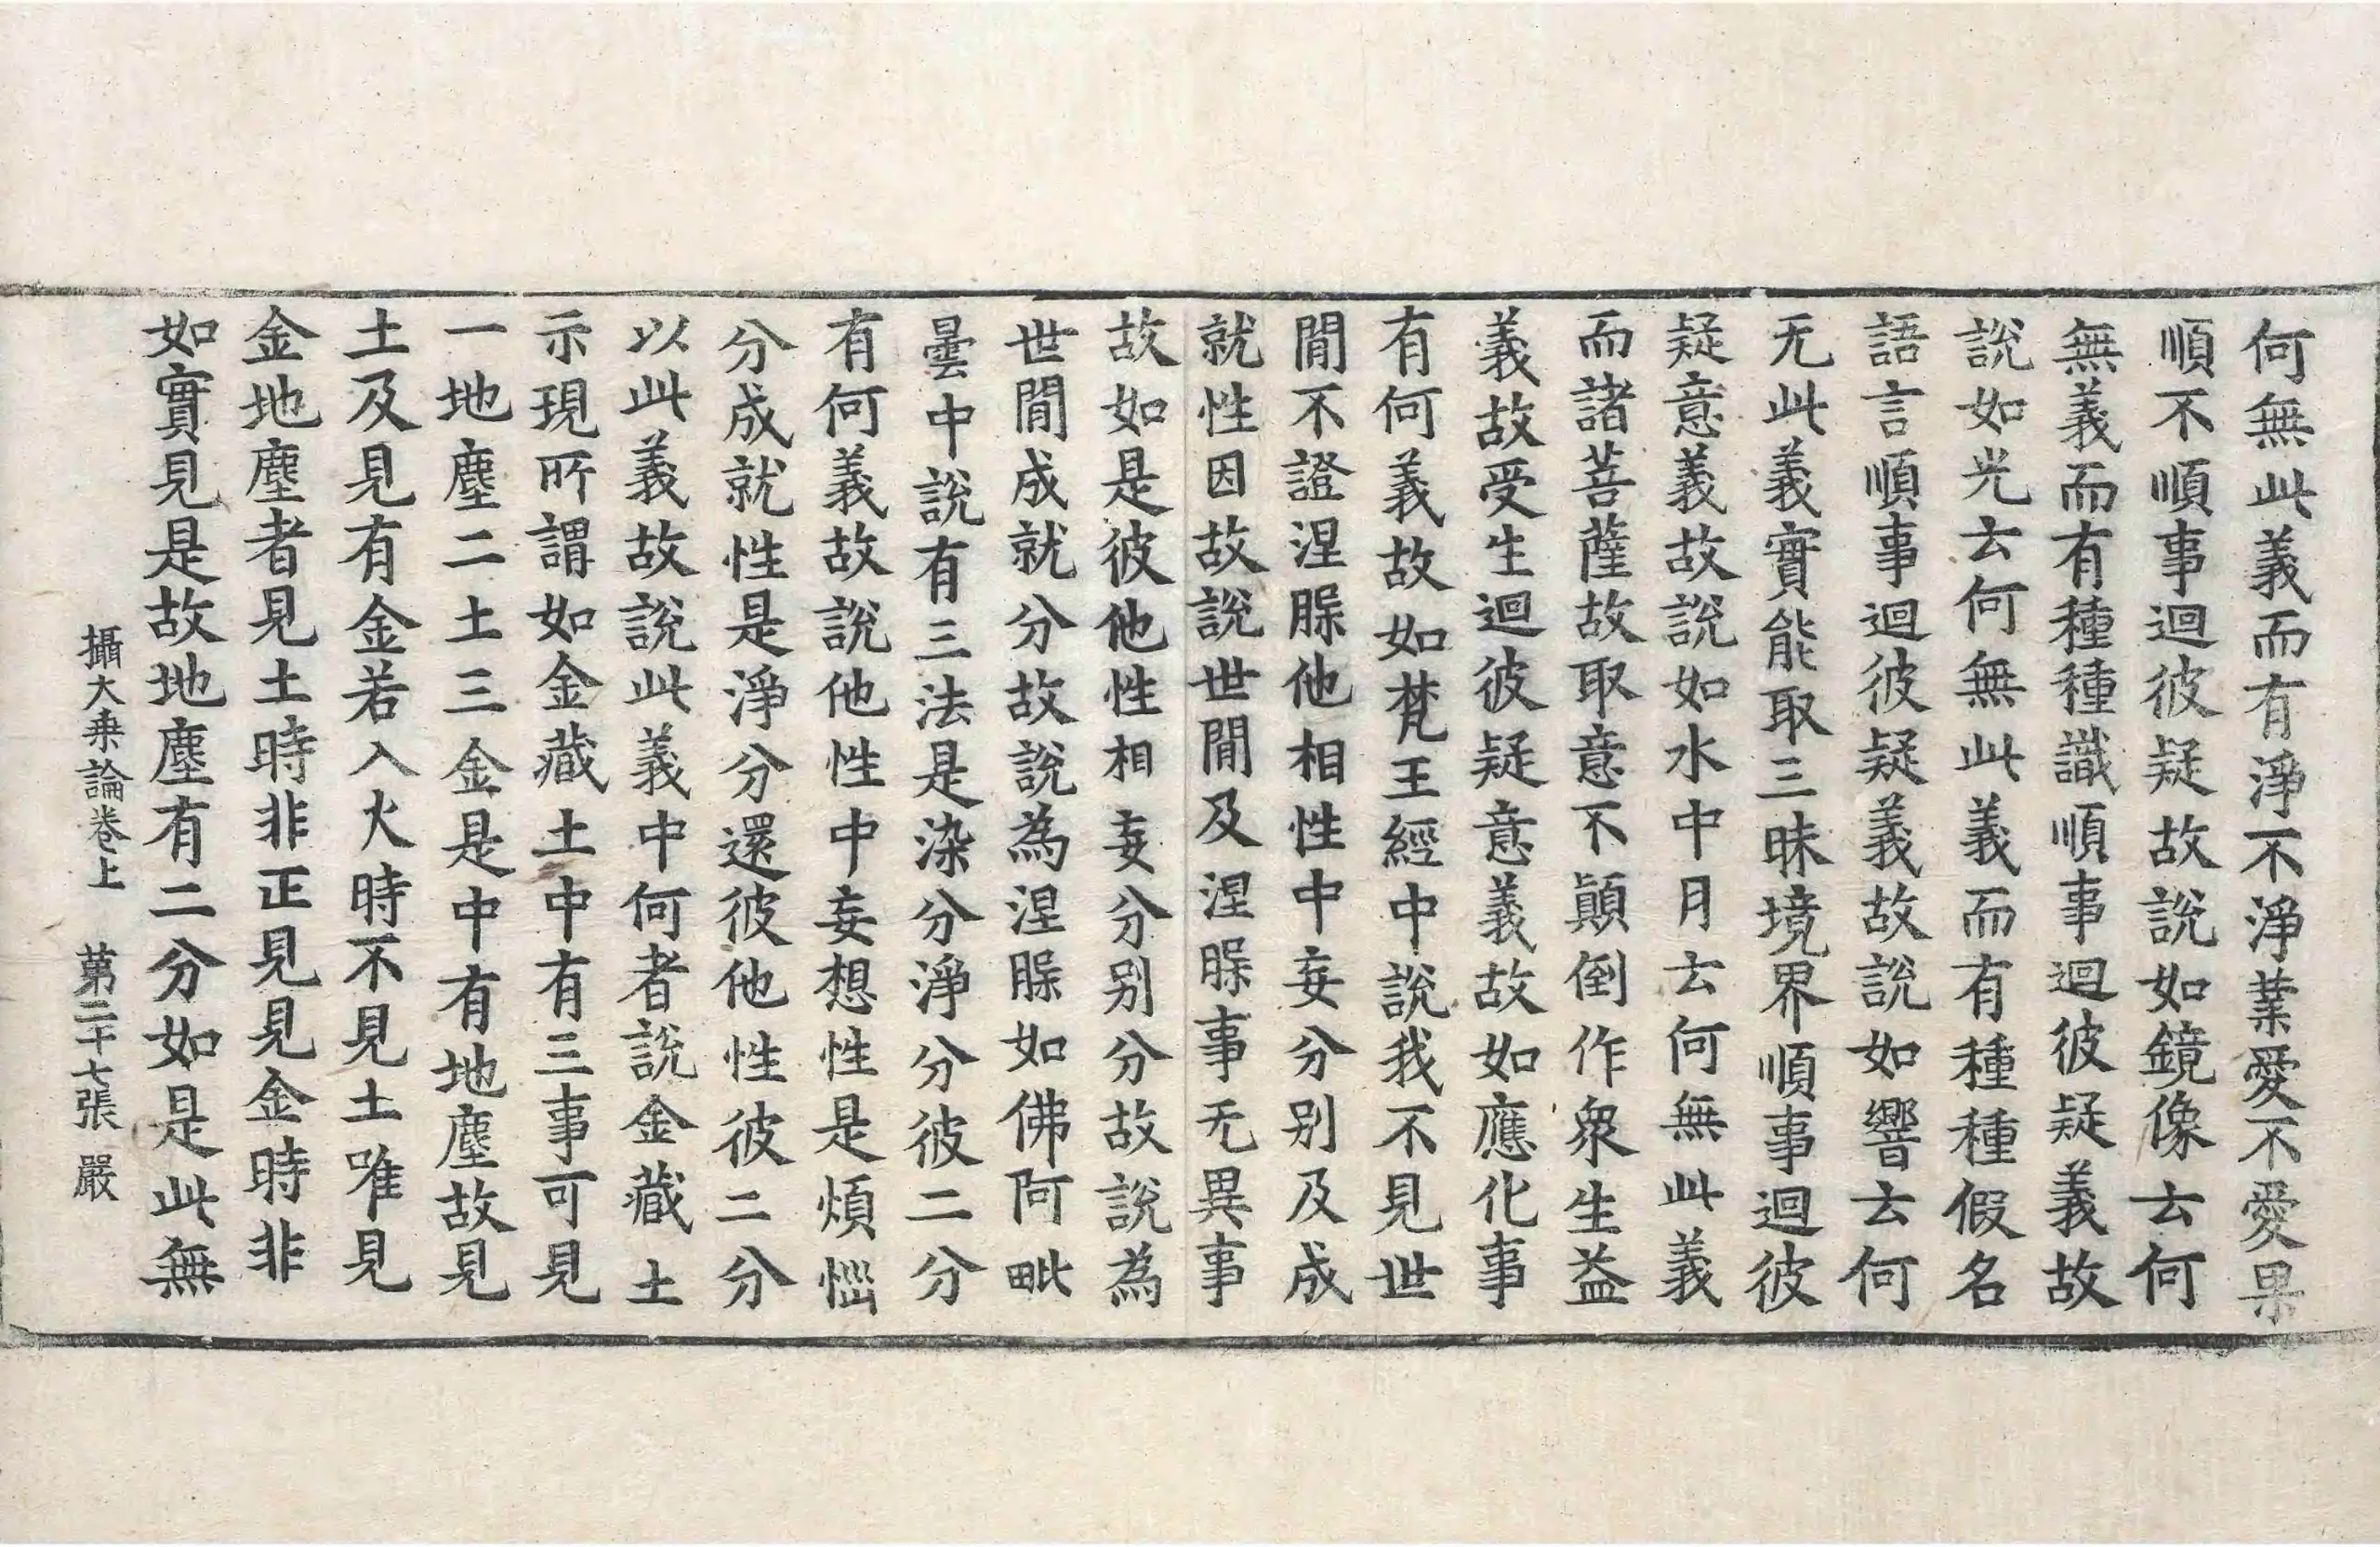 何無此義而有淨不淨業愛不愛果
順不順事迴彼疑故說如鏡像去何
無義而有種種識順事迴彼疑義故
說如光去何無此義而有種種假名
語言順事迴彼疑義故說如響去何
无此義實能取三昧境界順事迴彼
疑意義故說如水中月去何無此義
而諸菩薩故取意不顛倒作衆生益
義故受生迴彼疑意義故如應化事
有何義故如梵王經中說我不見世
間不證涅槃他相性中妄分别及成
就性因故說世間及涅槃事无異事
故如是彼他性相妄分别分故說為
世間成就分故說為涅槃如佛阿毗
曇中說有三法是染分淨分彼二分
有何義故說他性中妄想性是煩惱
分成就性是淨分還彼他性彼二分
以此義故說此義中何者說金藏土
示現所謂如金藏土中有三事可見
一地塵二土三金是中有地塵故見
土及見有金若入火時不見土唯見
金地塵者見土時非正見見金時非
如實見是故地塵有二分如是此無
攝大乘論卷上 第二十七張 嚴